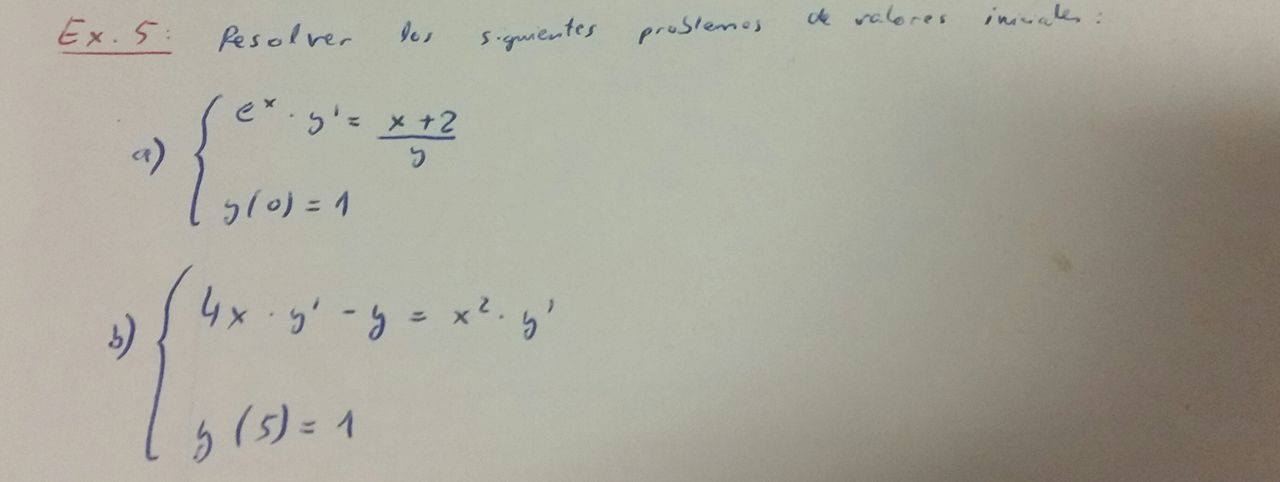 Ex. 5: Resolver los siguientes problemas de valores iniciales:
a) { e^x · y' = (x + 2)/y
y(0) = 1
b) { 4x · y' - y = x² · y'
y(5) = 1